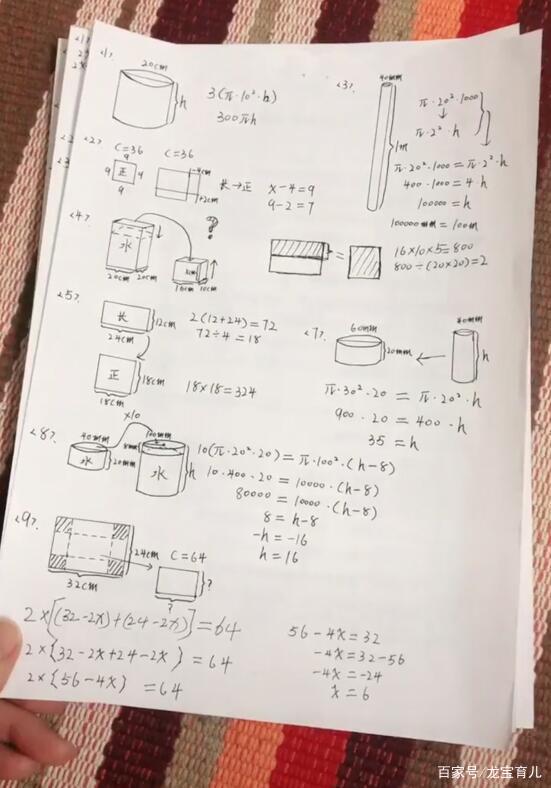 <1>.
20cm
h
3(π·10²·h)
300πh
<3>.
40mm
1m
π·20²·1000
π·2²·h
π·20²·1000=π·2²·h
400·1000=4·h
100000=h
100000mm=100m
<2>.
C=36
C=36
9
9 正 9
9
4cm
+2cm
长→正
x-4=9
9-2=7
<4>.
?
水
20cm 20cm
16cm 10cm
=
16×10×5=800
800÷(20×20)=2
<5>.
长
12cm
24cm
2(12+24)=72
72÷4=18
正
18cm
18cm
18×18=324
<7>.
60mm
20mm
40mm
h
π·30²·20=π·20²·h
900·20=400·h
35=h
<8>.
×10
40mm
水
20mm
8mm
水
h
10(π·20²·20)=π·100²·(h-8)
10·400·20=10000·(h-8)
80000=10000·(h-8)
8=h-8
-h=-16
h=16
<9>.
24cm
32cm
C=64
?
?
2×[(32-2x)+(24-2x)]=64
2×{32-2x+24-2x}=64
2×{56-4x}=64
56-4x=32
-4x=32-56
-4x=-24
x=6
百家号/龙宝育儿